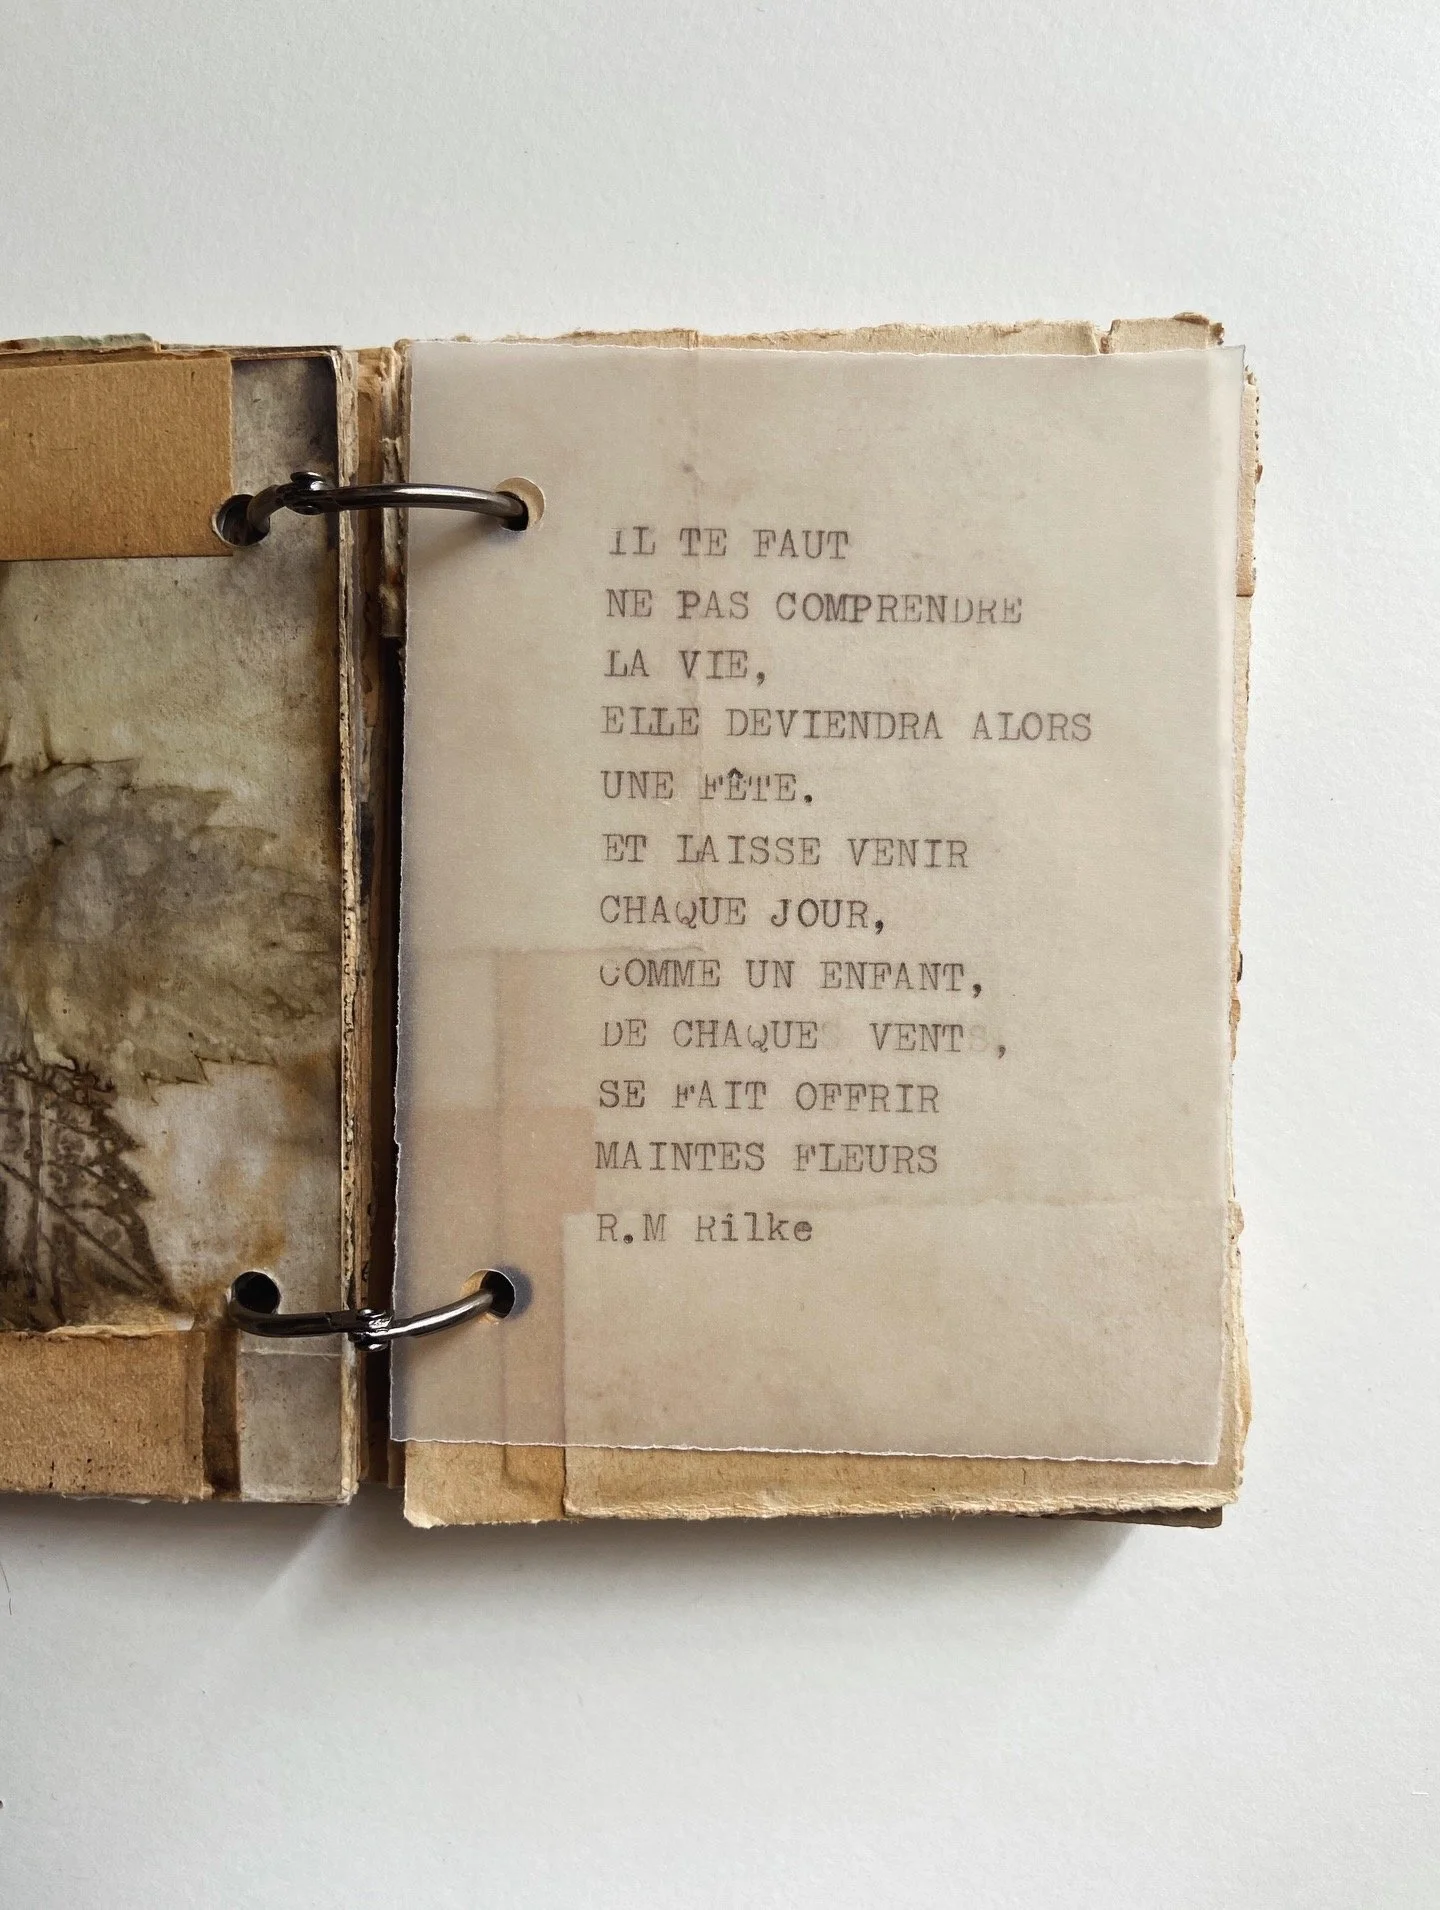 IL TE FAUT
NE PAS COMPRENDRE
LA VIE,
ELLE DEVIENDRA ALORS
UNE FÊTE.
ET LAISSE VENIR
CHAQUE JOUR,
COMME UN ENFANT,
DE CHAQUE VENT,
SE FAIT OFFRIR
MAINTES FLEURS
R.M Rilke